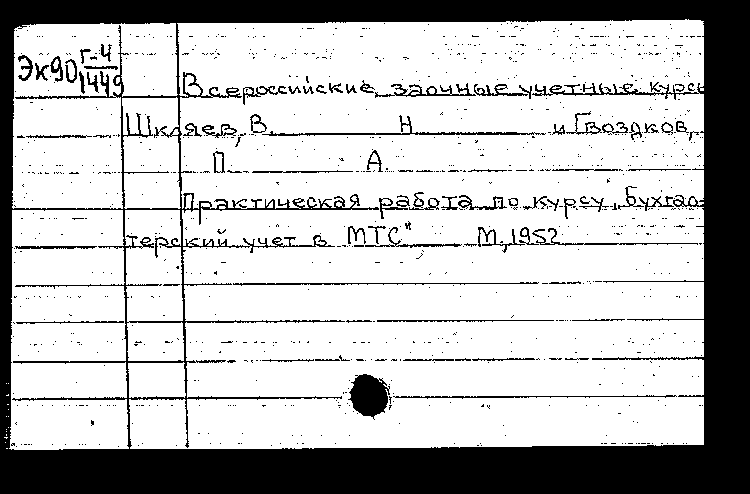 Эк90 Г-4
1449
Всероссийские заочные учетные курсы
Шкляев, В. Н. и Гвоздков,
П. А.
Практическая работа по курсу „Бухгал-
терский учет в МТС" М., 1952